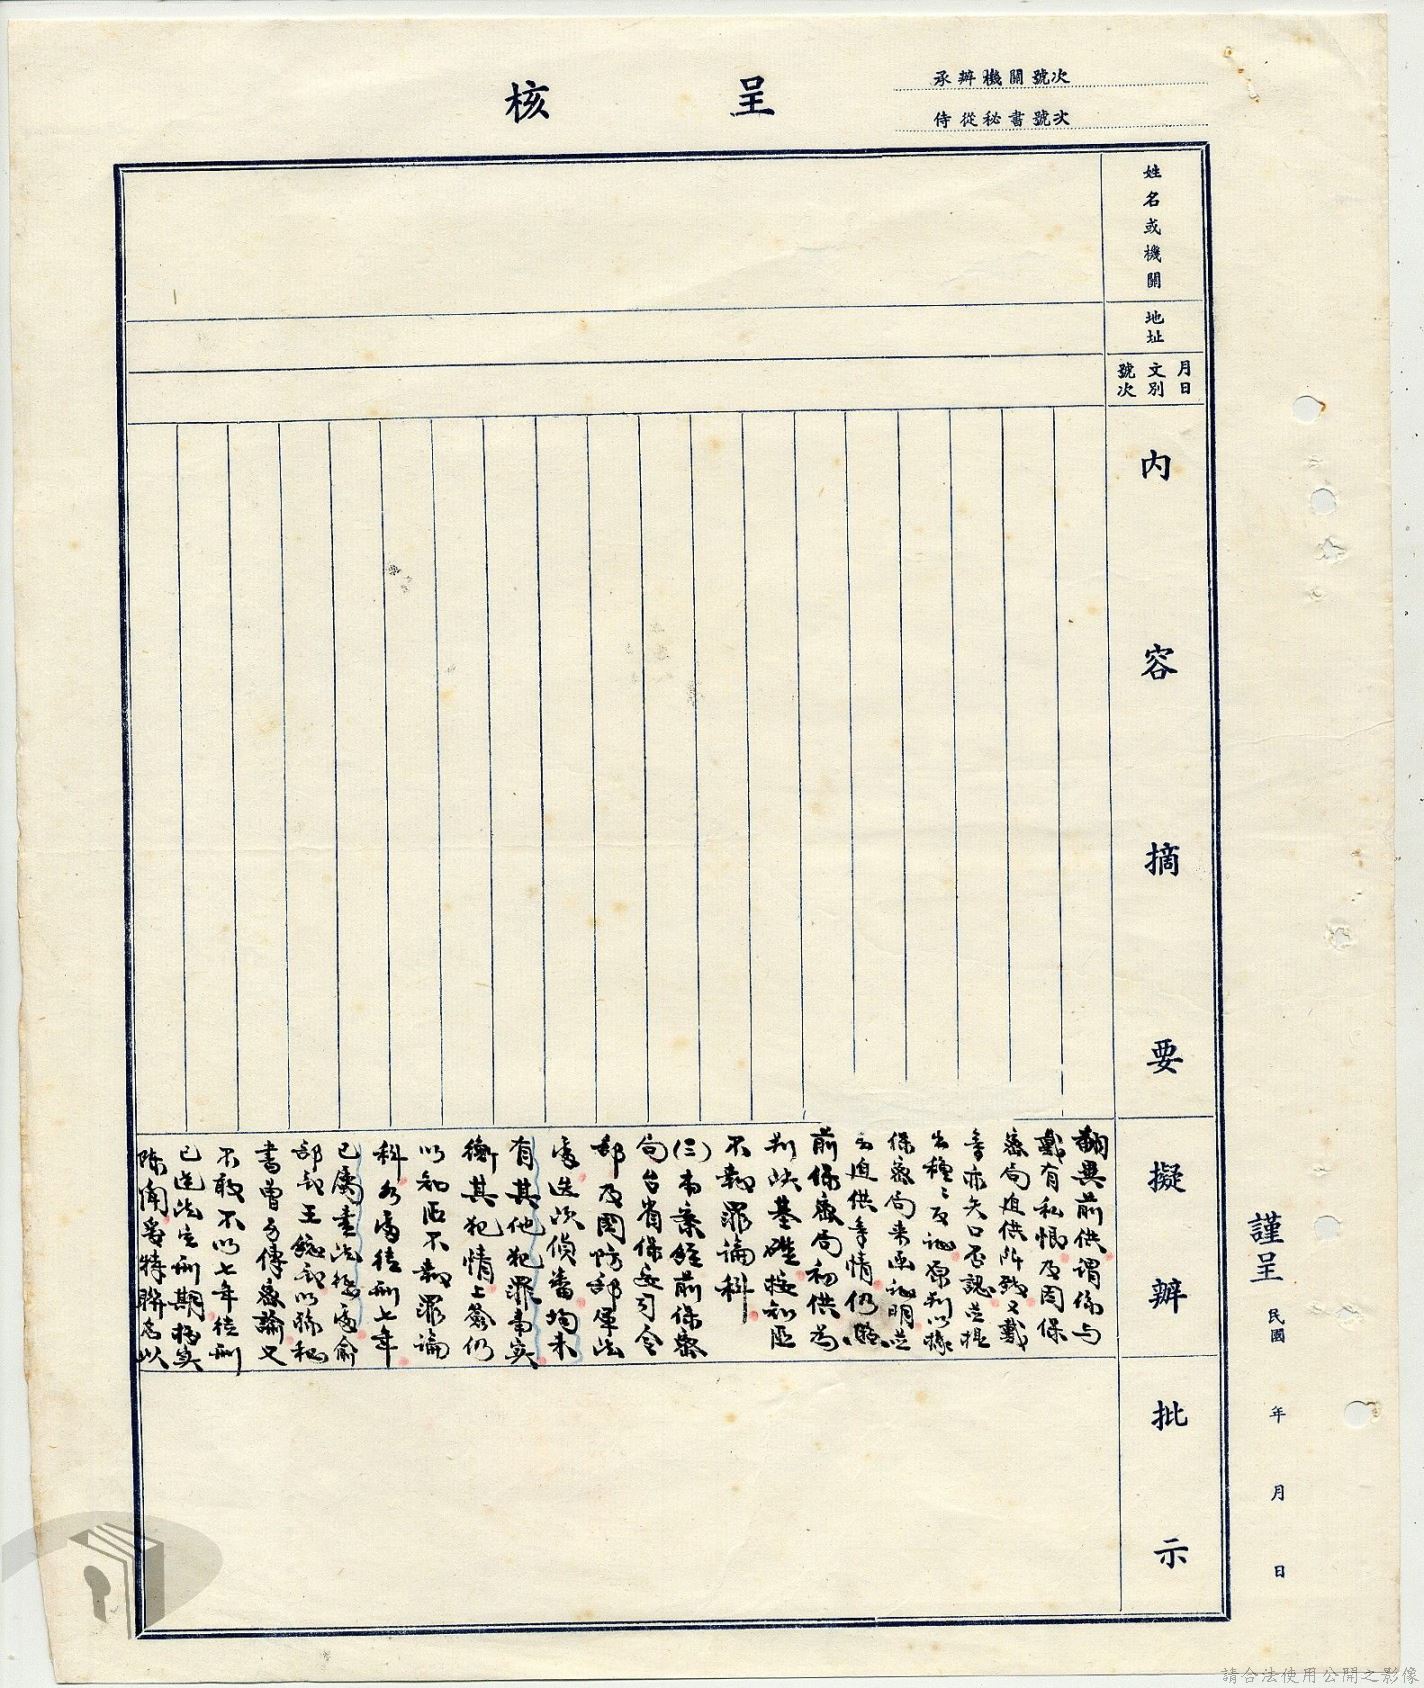 呈核
承辦機關號次
侍從秘書號次
姓名或機關
地址
月日
文別
號次
內容摘要
擬辦
批示
翻異前供謂係與
戴有私恨及因保
密局迫供所致又戴
亦矢口否認並提
出種種反證原判以據
保密局來函證明並
無迫供情仍照
前保密局初供為
判決基礎按知匪
不報罪論科
(三)本案經前保密
局台省保安司令
部及國防部軍法
處迭次偵審均未
有其他犯罪事實
衡其犯情上簽仍
以知匪不報罪論
科各處徒刑七年
已屬重法極處俞
部部王總部以孫秘
書曾奉傳嚴諭又
不敢不以七年徒刑
已逾法定刑期據實
陳聞爰特聯名以
謹呈
民國 年 月 日
請合法使用公開之影像